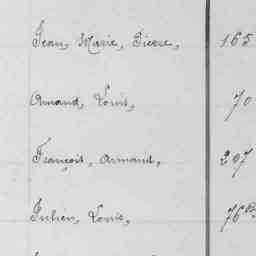 Jean, Marie, Pierre, 165
Amand, Louis, 70
François, Armand, 207
Julien, Louis, 76 Bis